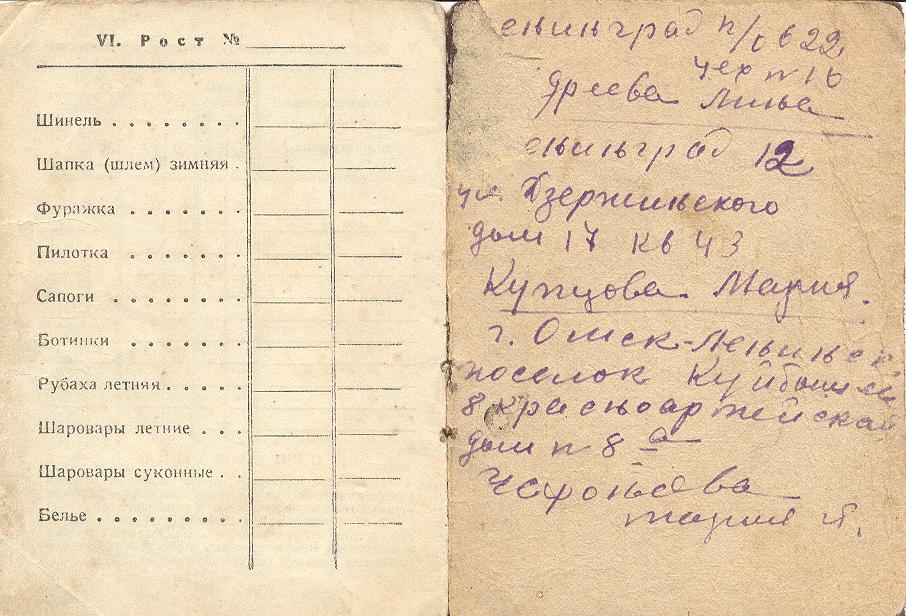 VI. Рост № 
Шинель
Шапка (шлем) зимняя
Фуражка
Пилотка
Сапоги
Ботинки
Рубаха летняя
Шаровары летние
Шаровары суконные
Белье
енинград п/о 622
цех п 16
дреева Лина
енинград 12
ул. Дзержинского
дом 17 кв 43
Купцова Мария.
г. Омск-Ленинск
поселок Куйбышев
8 красноармейская
дом п 8 а
Мария